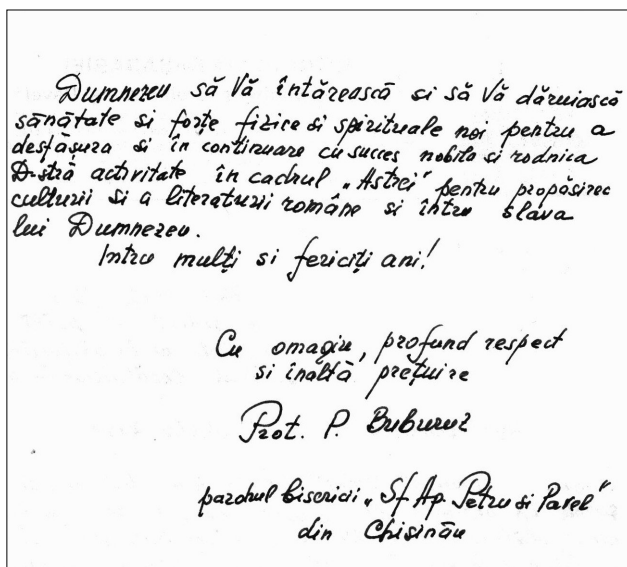 Dumnezeu să Vă întărească si să Vă dăruiască
sănătate si forțe fizice si spirituale noi pentru a
desfășura si în continuare cu succes nobila si rodnica
D-stră activitate în cadrul „Astrei” pentru propășirea
culturii si a literaturii române si întru slava
lui Dumnezeu.
Intru mulți si fericiți ani!
Cu omagiu, profund respect
si înaltă prețuire
Prot. P. Buburuz
parohul bisericii „Sf Ap. Petru si Pavel”
din Chisinău